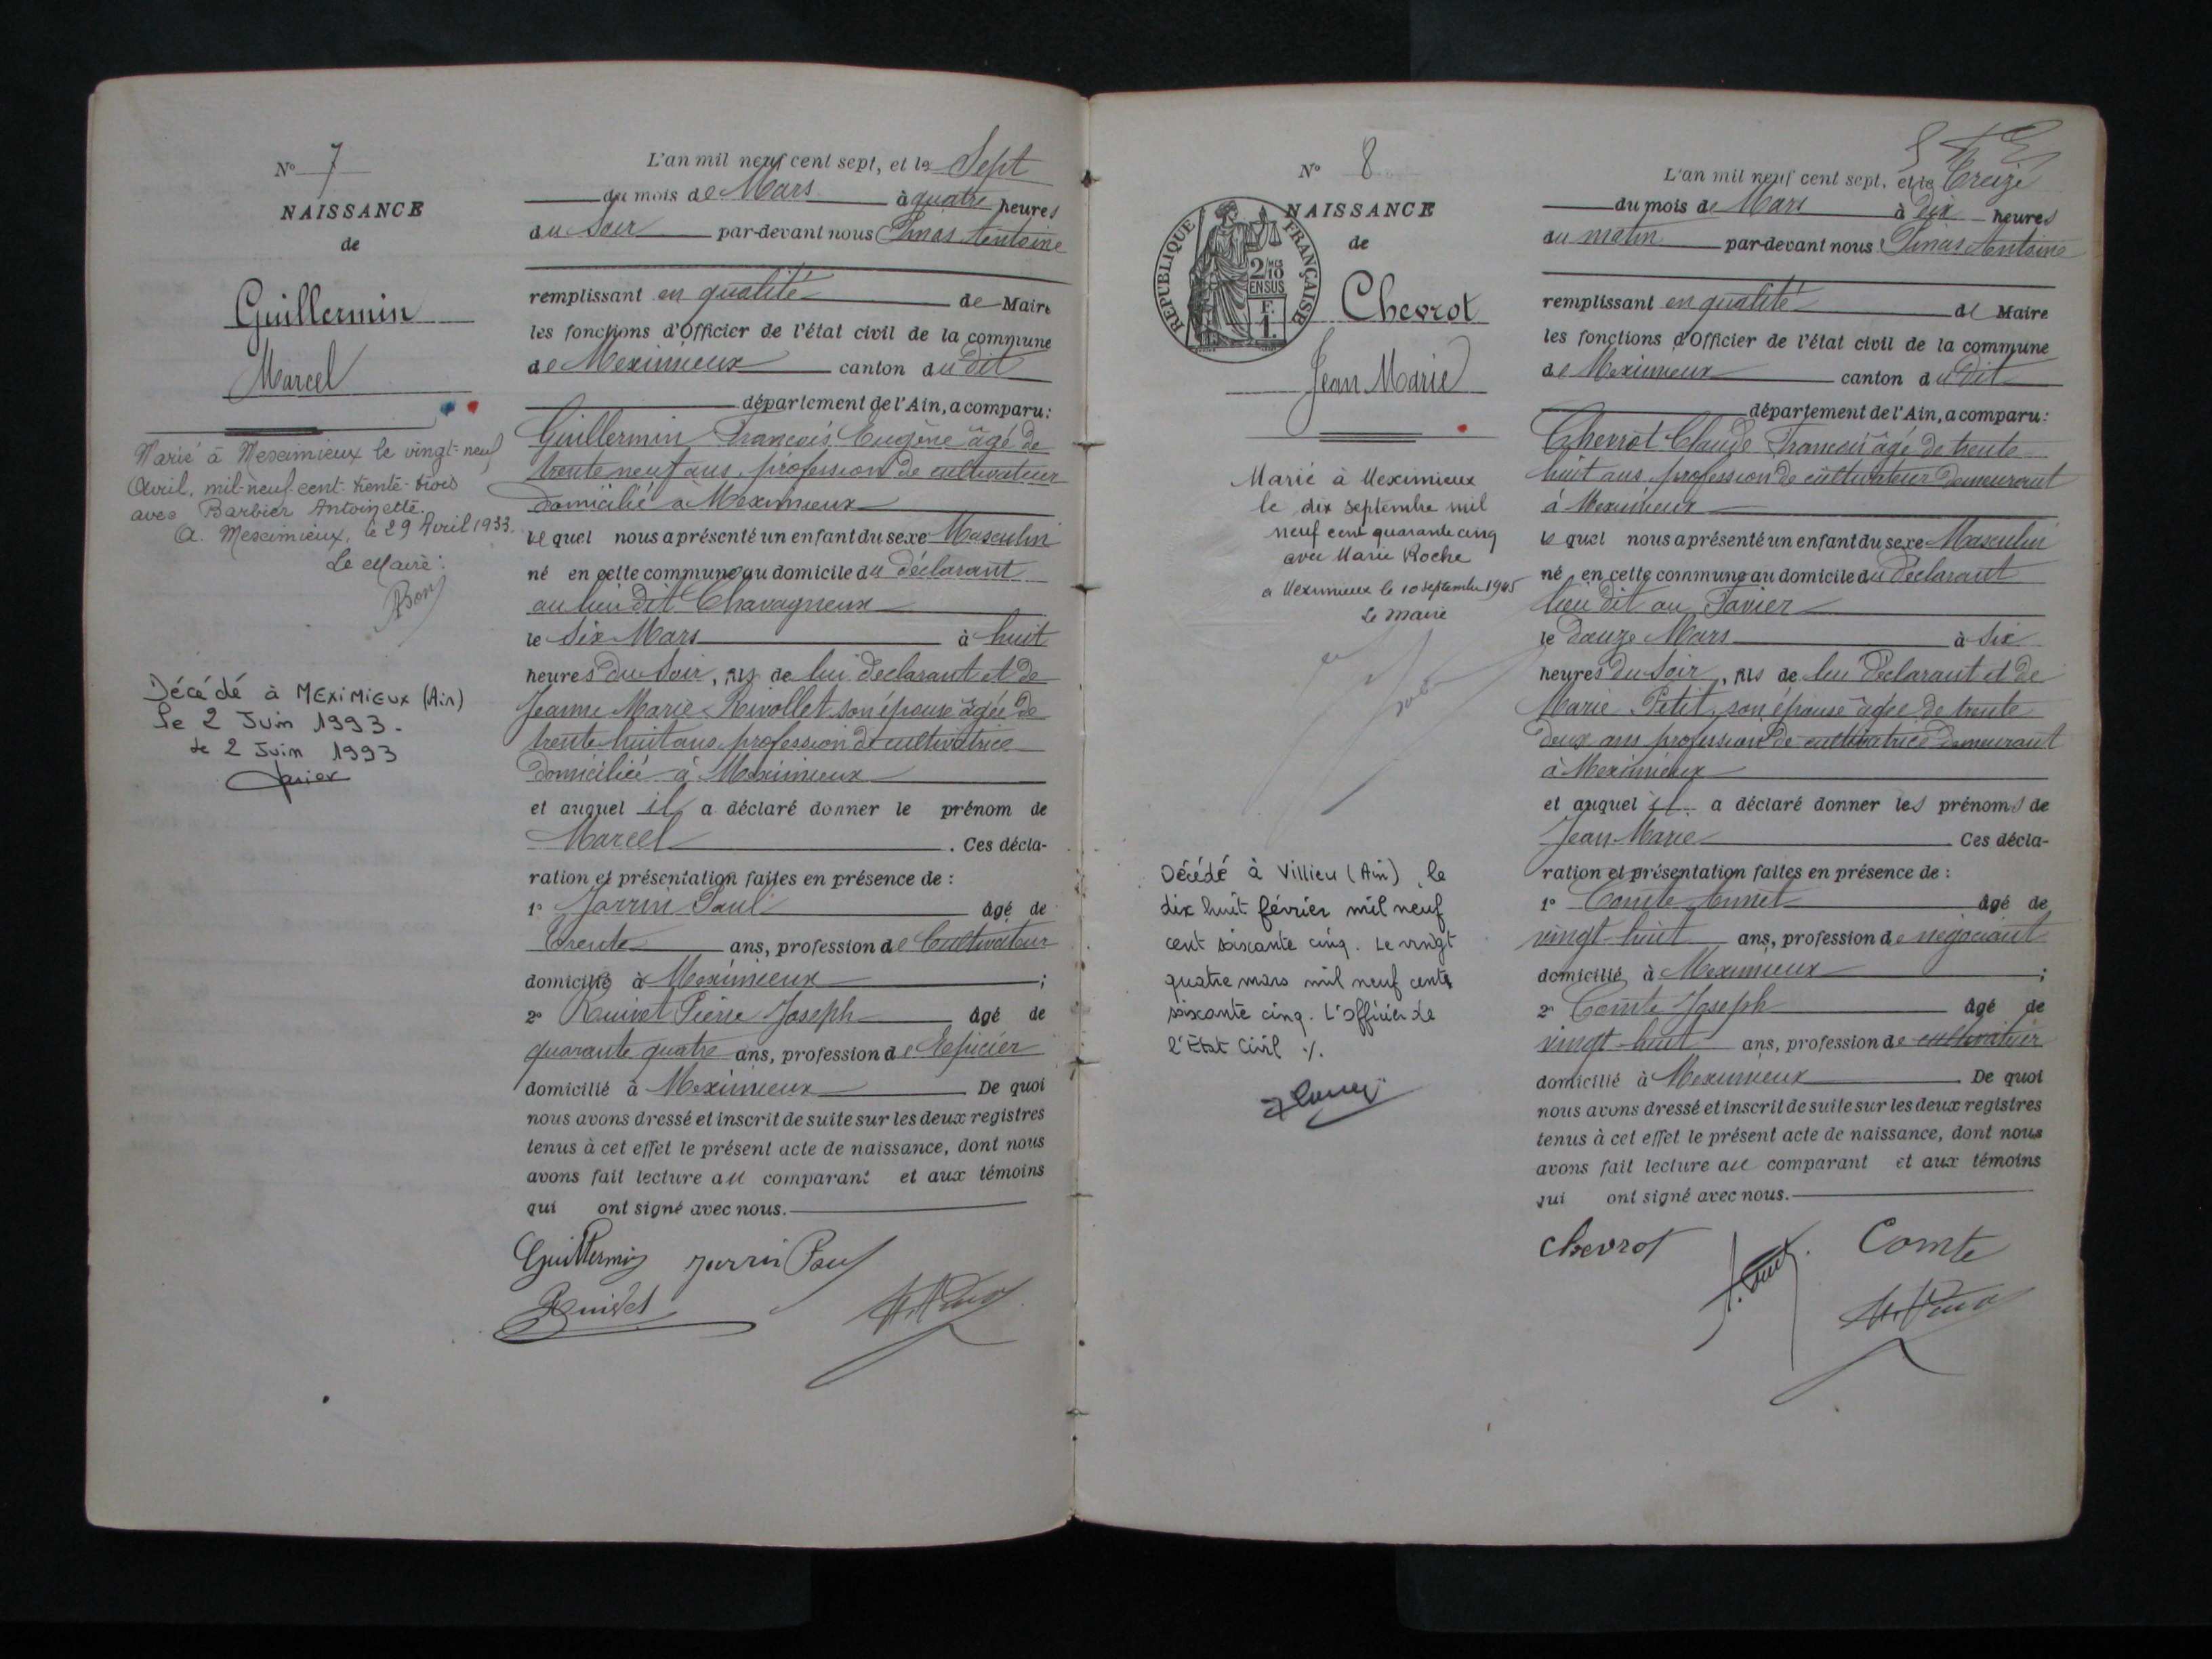 N° 7
NAISSANCE
de
Guillermin
Marcel
Marié à Meximieux le vingt-neuf
Avril, mil-neuf-cent-trente-trois
avec Barbier Antoinette.
A. Meximieux, le 29 Avril 1933.
Le Maire:
Décédé à MEXIMIEUX (Ain)
le 2 Juin 1993.
le 2 Juin 1993
L'an mil neuf cent sept, et le Sept
du mois de Mars à quatre heures
du Soir par-devant nous Pinas Antoine
remplissant en qualité de Maire
les fonctions d'Officier de l'état civil de la commune
de Meximieux canton du dit
département de l'Ain, a comparu:
Guillermin François Eugène âgé de
trente neuf ans, profession de cultivateur
domicilié à Meximieux
le quel nous a présenté un enfant du sexe Masculin
né en cette commune au domicile du déclarant
au lieu dit Chavagneux
le Six Mars à huit
heures du Soir, fils de lui déclarant et de
Jeanne Marie Rivollet son épouse âgée de
trente-huit ans profession de cultivatrice
domiciliée à Meximieux
et auquel il a déclaré donner le prénom de
Marcel . Ces décla-
ration et présentation faites en présence de :
1° Jarrin Paul âgé de
trente ans, profession de Cultivateur
domicilié à Meximieux ;
2° Pierre Joseph âgé de
quarante quatre ans, profession de Epicier
domicilié à Meximieux De quoi
nous avons dressé et inscrit de suite sur les deux registres
tenus à cet effet le présent acte de naissance, dont nous
avons fait lecture au comparant et aux témoins
qui ont signé avec nous.
Guillermin Jarrin Paul
N° 8
NAISSANCE
de
REPUBLIQUE FRANÇAISE
2/10 EN SUS
F. 1
Chevrot
Jean Marie
Marié à Meximieux
le dix septembre mil
neuf cent quarante cinq
avec Marie Roche
a Meximieux le 10 septembre 1945
Le Maire
Décédé à Villieu (Ain), le
dix huit février mil neuf
cent soixante cinq. Le vingt
quatre mars mil neuf cent
soixante cinq. L'officier de
l'Etat Civil %.
L'an mil neuf cent sept, et le treize
du mois de Mars à dix heures
du matin par-devant nous Pinas Antoine
remplissant en qualité de Maire
les fonctions d'Officier de l'état civil de la commune
de Meximieux canton du dit
département de l'Ain, a comparu:
Chevrot Claude François âgé de trente
huit ans, profession de cultivateur demeurant
à Meximieux
le quel nous a présenté un enfant du sexe Masculin
né en cette commune au domicile du déclarant
lieu dit au
le douze Mars à Six
heures du Soir, fils de lui déclarant et de
Marie Petit, son épouse âgée de trente
deux ans profession de cultivatrice demeurant
à Meximieux
et auquel il a déclaré donner les prénoms de
Jean Marie Ces décla-
ration et présentation faites en présence de :
1° Comte âgé de
vingt-huit ans, profession de négociant
domicilié à Meximieux ;
2° Comte Joseph âgé de
vingt-huit ans, profession de cultivateur
domicilié à Meximieux De quoi
nous avons dressé et inscrit de suite sur les deux registres
tenus à cet effet le présent acte de naissance, dont nous
avons fait lecture au comparant et aux témoins
qui ont signé avec nous.
chevrot Comte